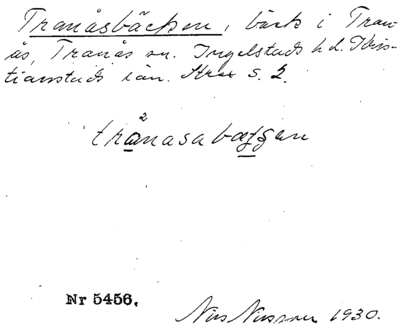 Tranåsbäcken, bäck i Tran-
ås, Tranås sn. Ingelstads hd. Kris-
tianstads län. s. 2.
2
trånasabæggen
Nr 5456.
Nils Nilsson 1930.